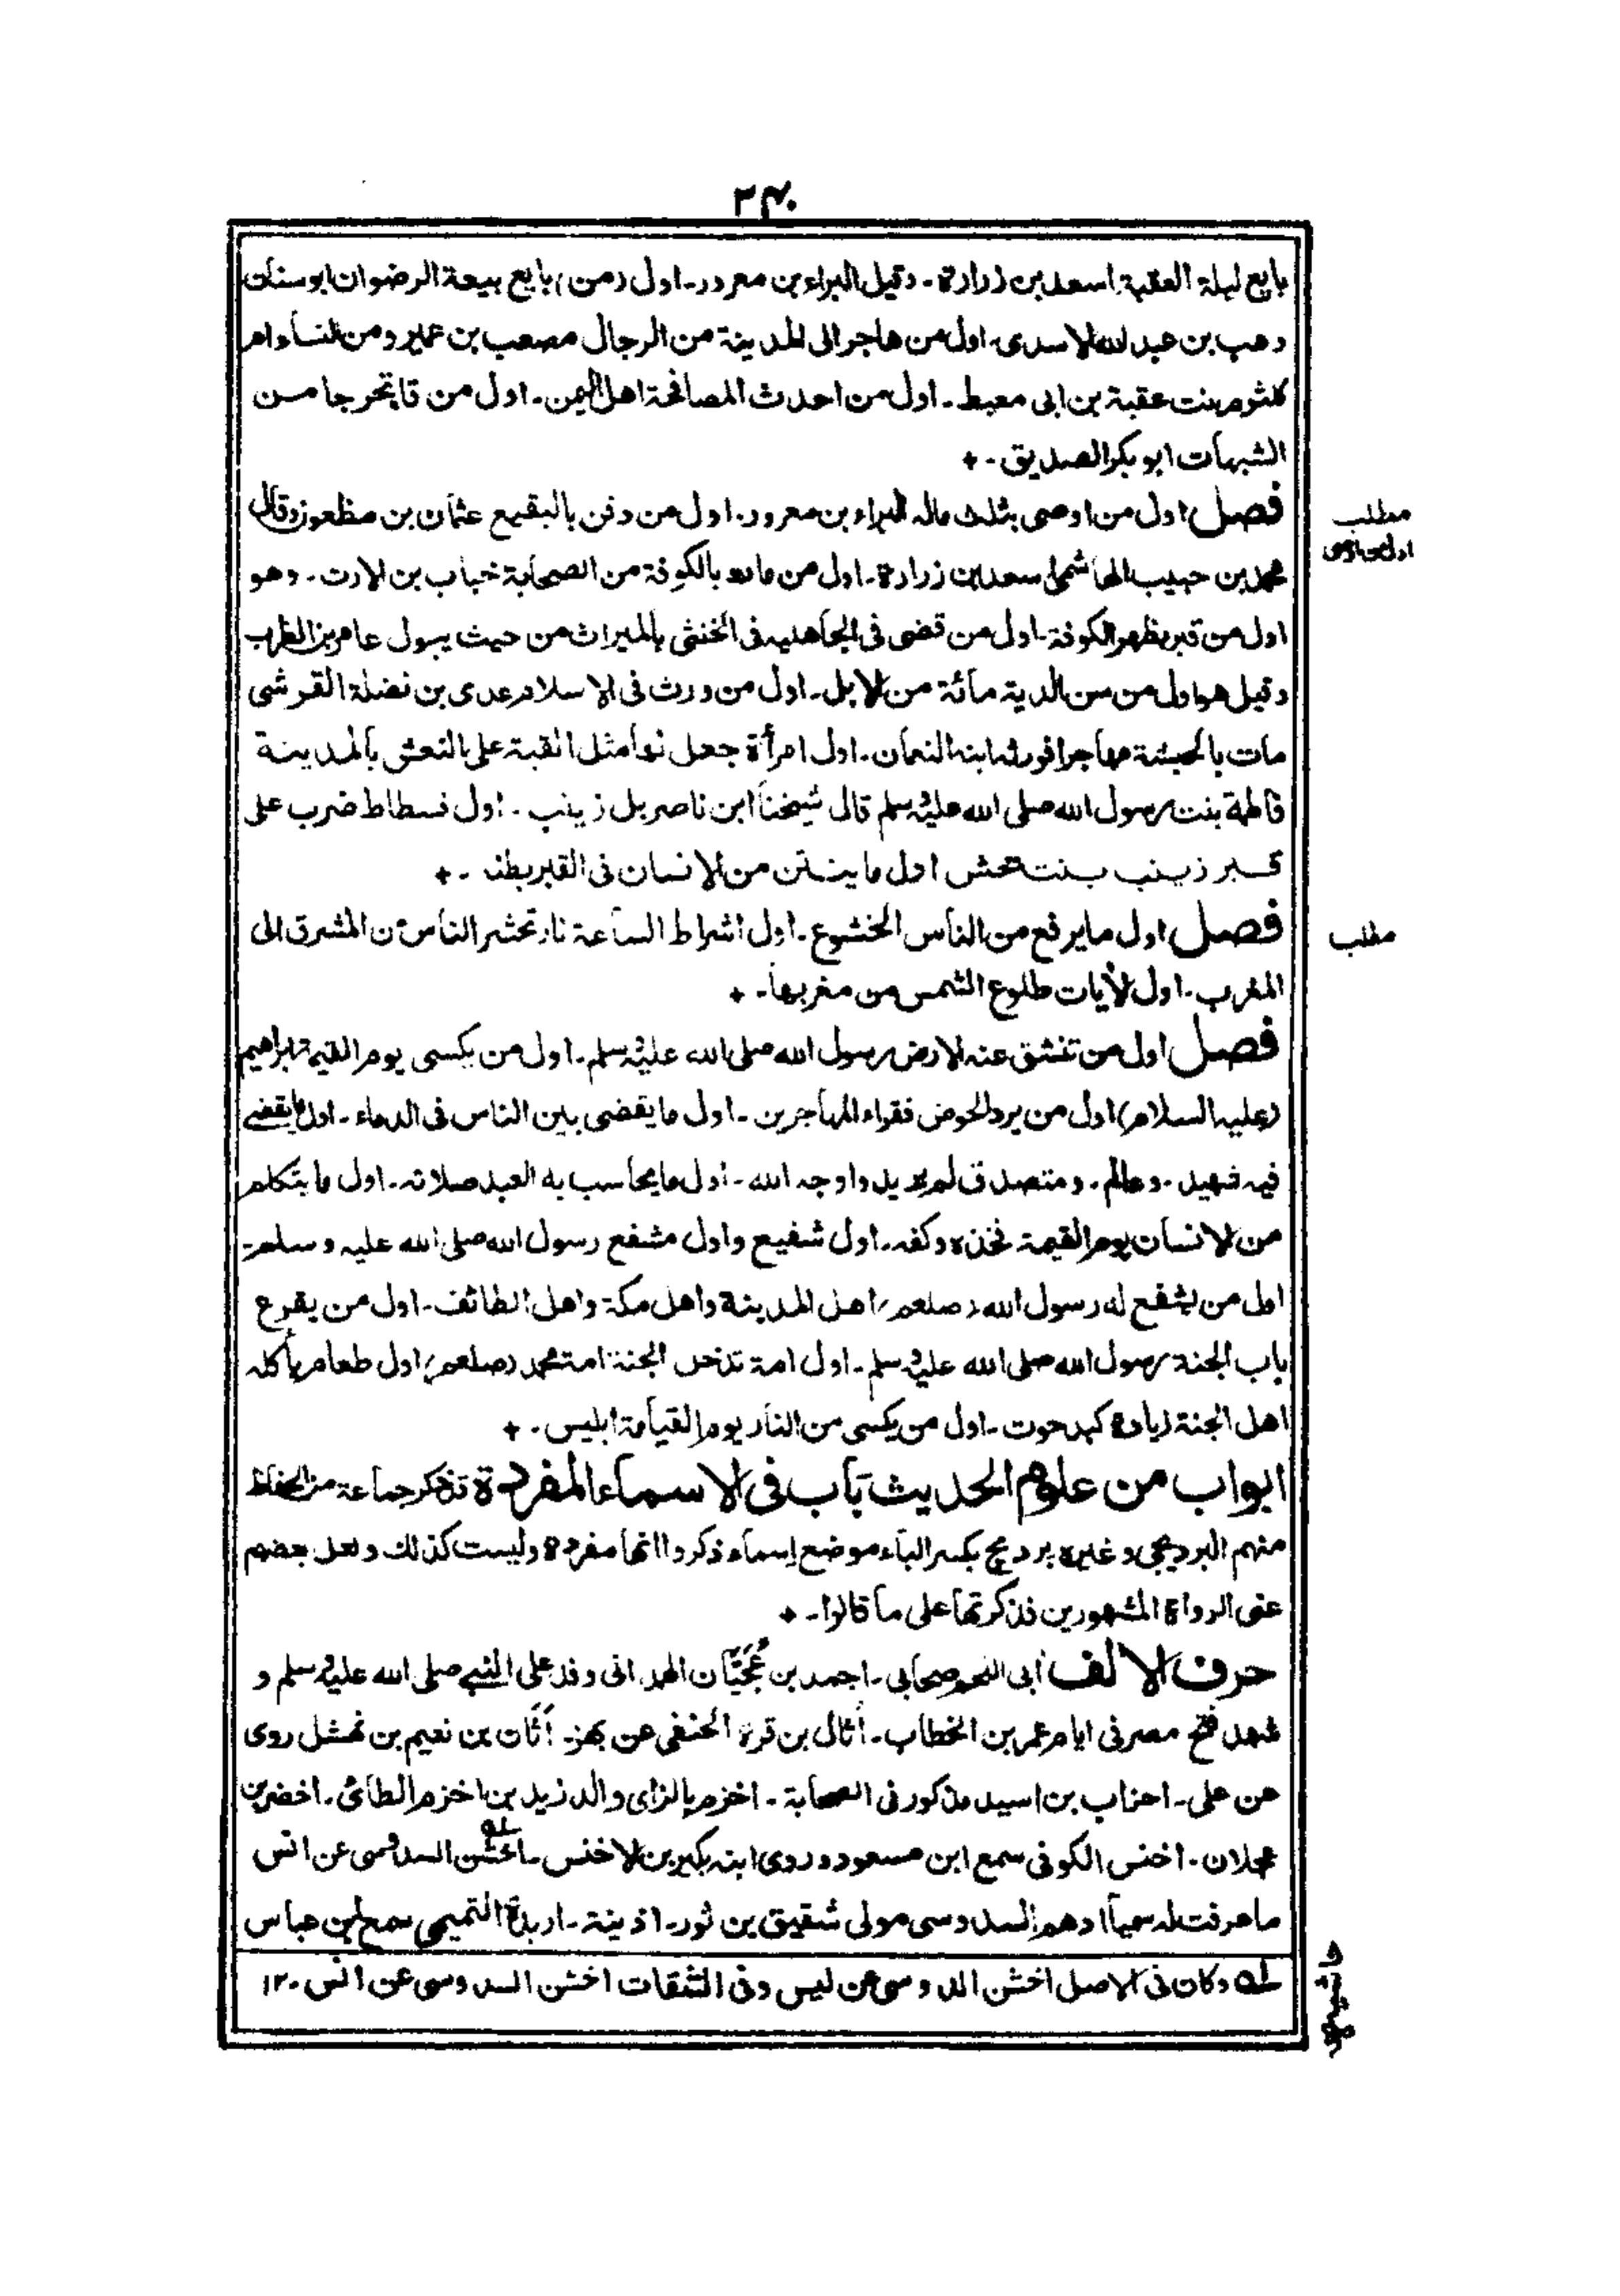 ٢٤٠
بايع ليلة العقبة اسعد بن زرارة ـ وقيل البراء بن معرور ـ اول (من) بايع بيعة الرضوان ابو سنان
وهب بن عبد الله الاسدى ـ اول من هاجر الى المدينة من الرجال مصعب بن عمير ومن النساء ام
كلثوم بنت عقبة بن ابى معيط ـ اول من احدث المصافحة اهل اليمن ـ اول من قاء تحرجا من
الشبهات ابو بكر الصديق ـ
فصل اول من اوصى بثلث ماله البراء بن معرور ـ اول من دفن بالبقيع عثمان بن مظعون وقال
محمد بن حبيب الهاشمى اسعد بن زرارة ـ اول من مات بالكوفة من الصحابة خباب بن الارت ـ وهو
اول من قبر بظهر الكوفة ـ اول من قضى فى الجاهليه فى الخنثى بالميراث من حيث يبول عامر بن الظرب
وقيل هو اول من سن الدية مائة من الابل ـ اول من ورث فى الاسلام عدى بن نضلة القرشى
مات بالحبشة مهاجرا فورثه ابنه النعمان ـ اول امرأة جعل لها مثل القبة على النعش بالمدينة
فاطمة بنت رسول الله صلى الله عليه وسلم قال شيخنا ابن ناصر بل زينب ـ اول فسطاط ضرب على
قبر زينب بنت جحش اول ما ينتن من الانسان فى القبر بطنه ـ
فصل اول ما يرفع من الناس الخشوع ـ اول اشراط الساعة نار تحشر الناس من المشرق الى
المغرب ـ اول الآيات طلوع الشمس من مغربها ـ
فصل اول من تنشق عنه الارض رسول الله صلى الله عليه وسلم ـ اول من يكسى يوم القيمة ابراهيم
(عليه السلام) اول من يرد الحوض فقراء المهاجرين ـ اول ما يقضى بين الناس فى الدماء ـ اول ما يقضے
فيه شهيد ـ وعالم ـ ومتصدق لم يريدوا وجه الله ـ اول ما يحاسب به العبد صلاته ـ اول ما يتكلم
من الانسان يوم القيمة فخذه وكفه ـ اول شفيع واول مشفع رسول الله صلى الله عليه وسلم ـ
اول من يشفع له رسول الله (صلعم) اهل المدينة واهل مكة واهل الطائف ـ اول من يقرع
باب الجنة رسول الله صلى الله عليه وسلم ـ اول امة تدخل الجنة امة محمد (صلعم) اول طعام يأكله
اهل الجنة زيادة كبد حوت ـ اول من يكسى من النار يوم القيامة ابليس ـ
ابواب من علوم الحديث باب فى الاسماء المفردة قد ذكر جماعة من الحفاظ
منهم البرديجى وغيره برديج بكسر الباء موضع اسماء ذكروا انها مفردة وليست كذلك ولعل بعضهم
عنى الرواة المشهورين فذكرتها على ما قالوا ـ
حرف الالف أبى اللحم صحابى ـ احمد بن عُجَيَّان الهمدانى وفد على النبے صلى الله عليه وسلم و
شهد فتح مصر فى ايام عمر بن الخطاب ـ أثال بن قرة الحنفى عن بهز ـ أثان بن نعيم بن نهشل روى
عن على ـ احزاب بن اسيد مذكور فى الصحابة ـ اخزم بالزاى والد زيد بن اخزم الطائى ـ اخضر بن
عجلان ـ اخنس الكوفى سمع ابن مسعود وروى ابنه بكير بن الاخنس ـ اخشن السدوسى عن انس
ما عرفت له سميا ادهم السدوسى مولى شقيق بن ثور ـ اذينة ـ اربدة التميمى سمع ابن عباس
ـ وكان فى الاصل اخشن الدوسى عن ليس وفى الثقات اخشن السدوسى عن انس ـ ١٢
مطلب
اول من اوصى
مطلب